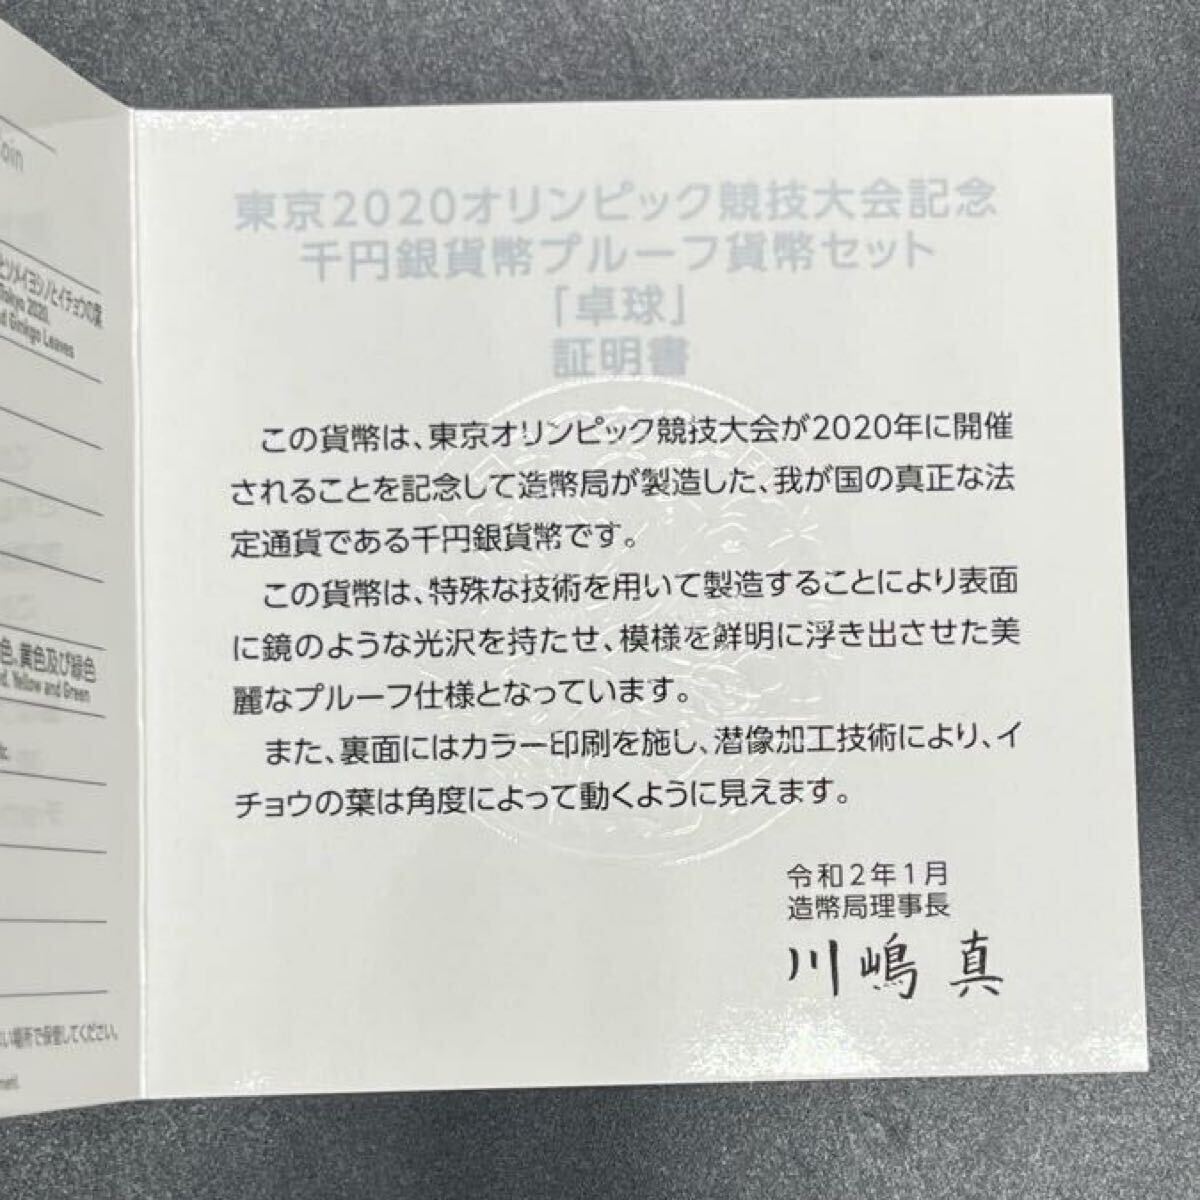 oin
とソメイヨシノとイチョウの葉
Tokyo 2020
d Ginkgo Leaves
色、黄色及び緑色
d, Yellow and Green
tc.
い場所で保管してください。
ment.
東京2020オリンピック競技大会記念
千円銀貨幣プルーフ貨幣セット
「卓球」
証明書
この貨幣は、東京オリンピック競技大会が2020年に開催
されることを記念して造幣局が製造した、我が国の真正な法
定通貨である千円銀貨幣です。
この貨幣は、特殊な技術を用いて製造することにより表面
に鏡のような光沢を持たせ、模様を鮮明に浮き出させた美
麗なプルーフ仕様となっています。
また、裏面にはカラー印刷を施し、潜像加工技術により、イ
チョウの葉は角度によって動くように見えます。
令和2年1月
造幣局理事長
川嶋 真